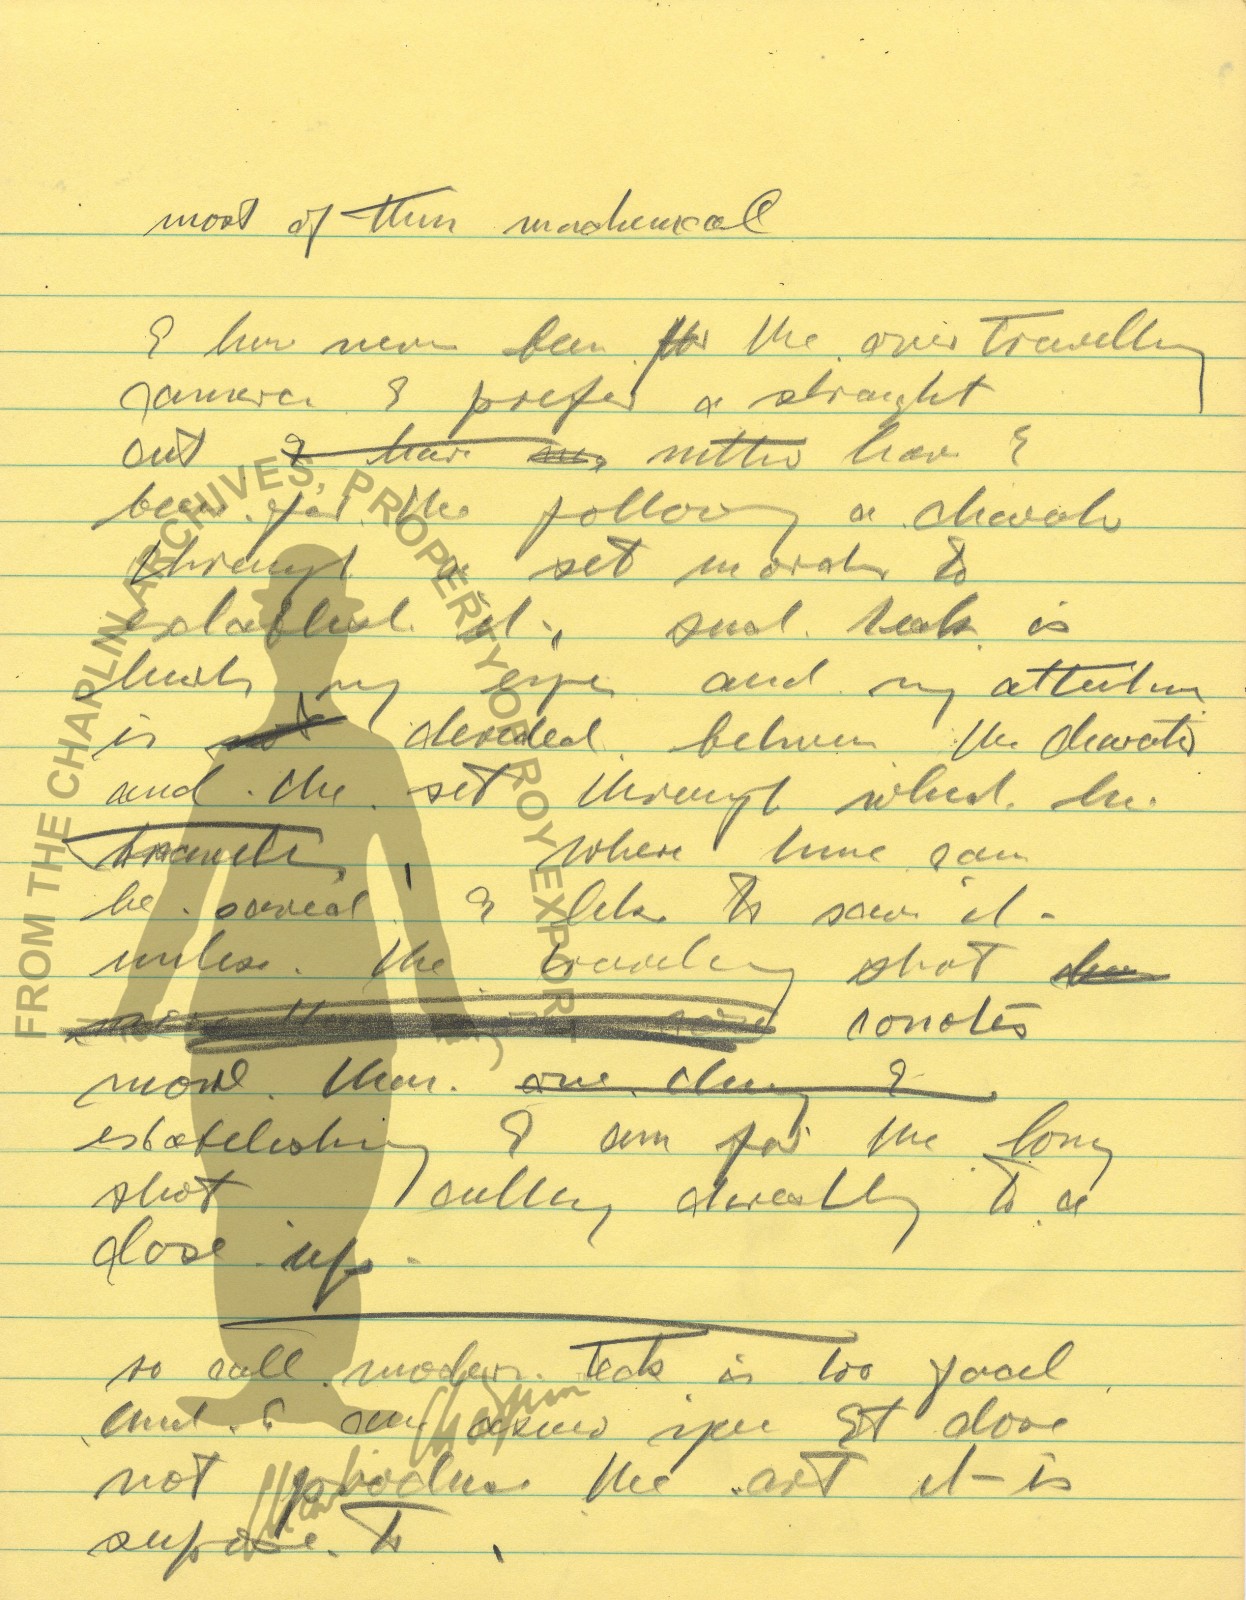 most of them mechenical
I have never been for the over travelling
camera I prefer a straight
cut I have neither have I
been for the following a
through a set to
establish it, such tech is
my eyes and my attention
is not devided between the
and the set through which he
travels, where time can
be saved I like to save it -
unless the traveling shot
conotes
more than one thing I
establishing I am for the long
shot cutting directly to a
close up.
so call modern tech is too good
and I am It dose
not produse the art it is
supose to.
FROM THE CHAPLIN ARCHIVES, PROPERTY OF ROY EXPORT
Charlie Chaplin